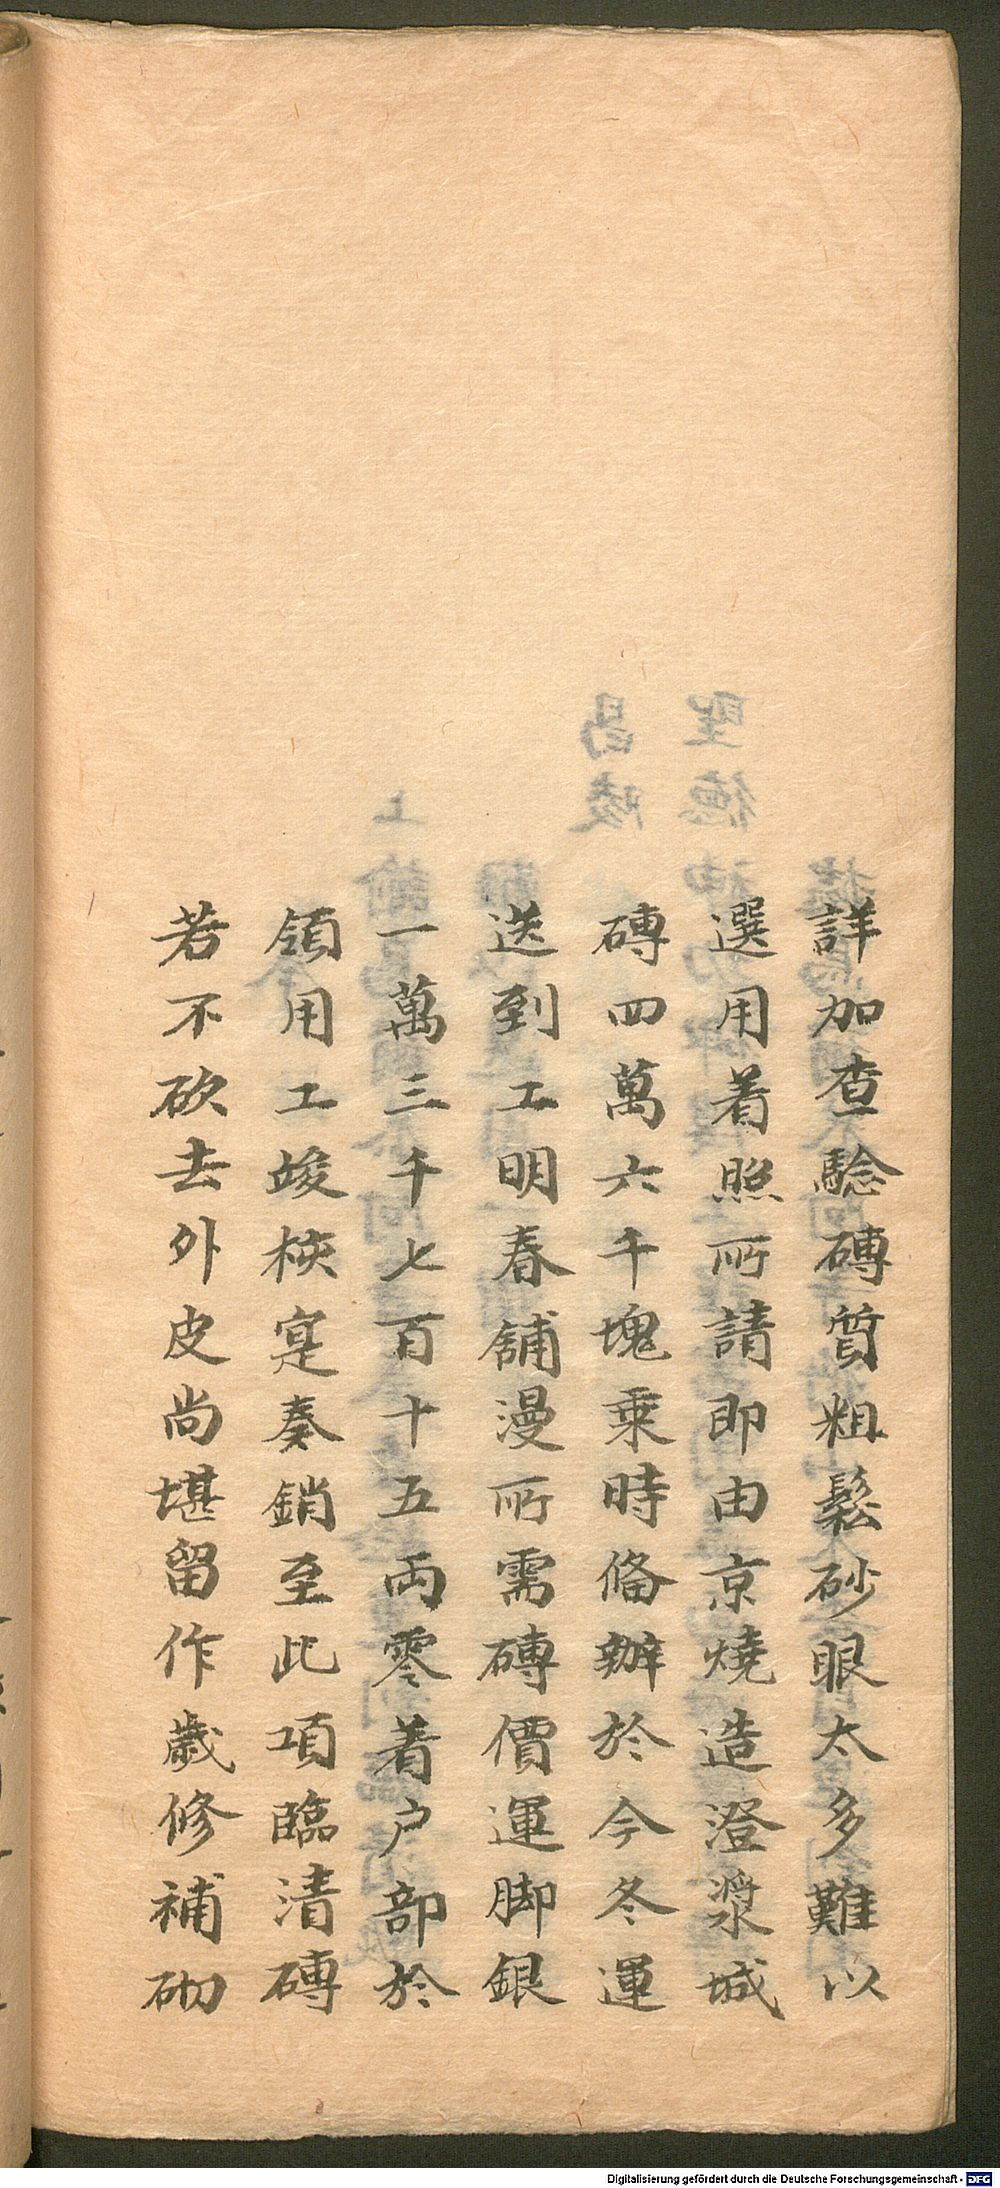 詳加查驗磚質粗鬆砂眼太多難以
選用着照所請即由京燒造澄漿城
磚四萬六千塊乘時俻辦於今冬運
送到工明春舖漫所需磚價運脚銀
一萬三千七百十五両零着户部於
領用工竣核寔奏銷至此項臨清磚
若不砍去外皮尚堪留作歲修補砌
Digitalisierung gefördert durch die Deutsche Forschungsgemeinschaft - DFG